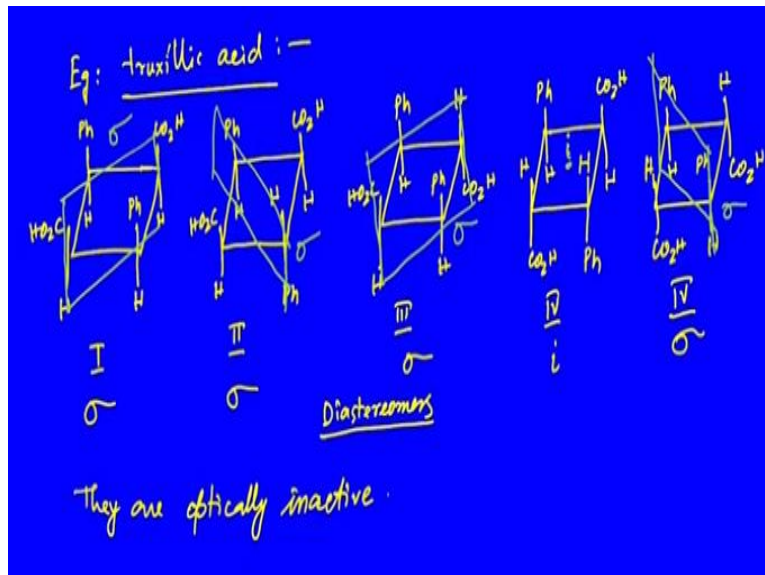 Eg: truxillic acid :-
Ph σ CO₂H
HO₂C H Ph H
H H
I
σ
Ph CO₂H
HO₂C H H H
H Ph σ
II
σ
Ph H
HO₂C H Ph CO₂H
H H σ
III
σ
Ph CO₂H
H H i H H
CO₂H Ph
IV
i
Ph H
H H Ph CO₂H
CO₂H H σ
IV
σ
Diastereomers
They are optically inactive.